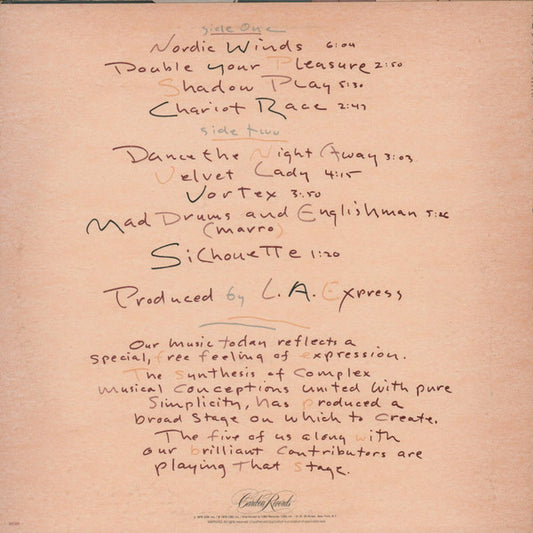 side One
Nordic Winds 6:04
Double your Pleasure 2:50
Shadow Play 5:30
Chariot Race 2:47
side two
Dance the Night Away 3:03
Velvet Lady 4:15
Vortex 3:50
Mad Drums and Englishman 5:26
(mavro)
Silhouette 1:20
Produced by L.A. Express
Our music today reflects a
special, free feeling of expression.
The synthesis of complex
musical conceptions united with pure
Simplicity, has produced a
broad Stage on which to create.
The five of us along with
our brilliant Contributors are
playing That Stage.
Caribou Records